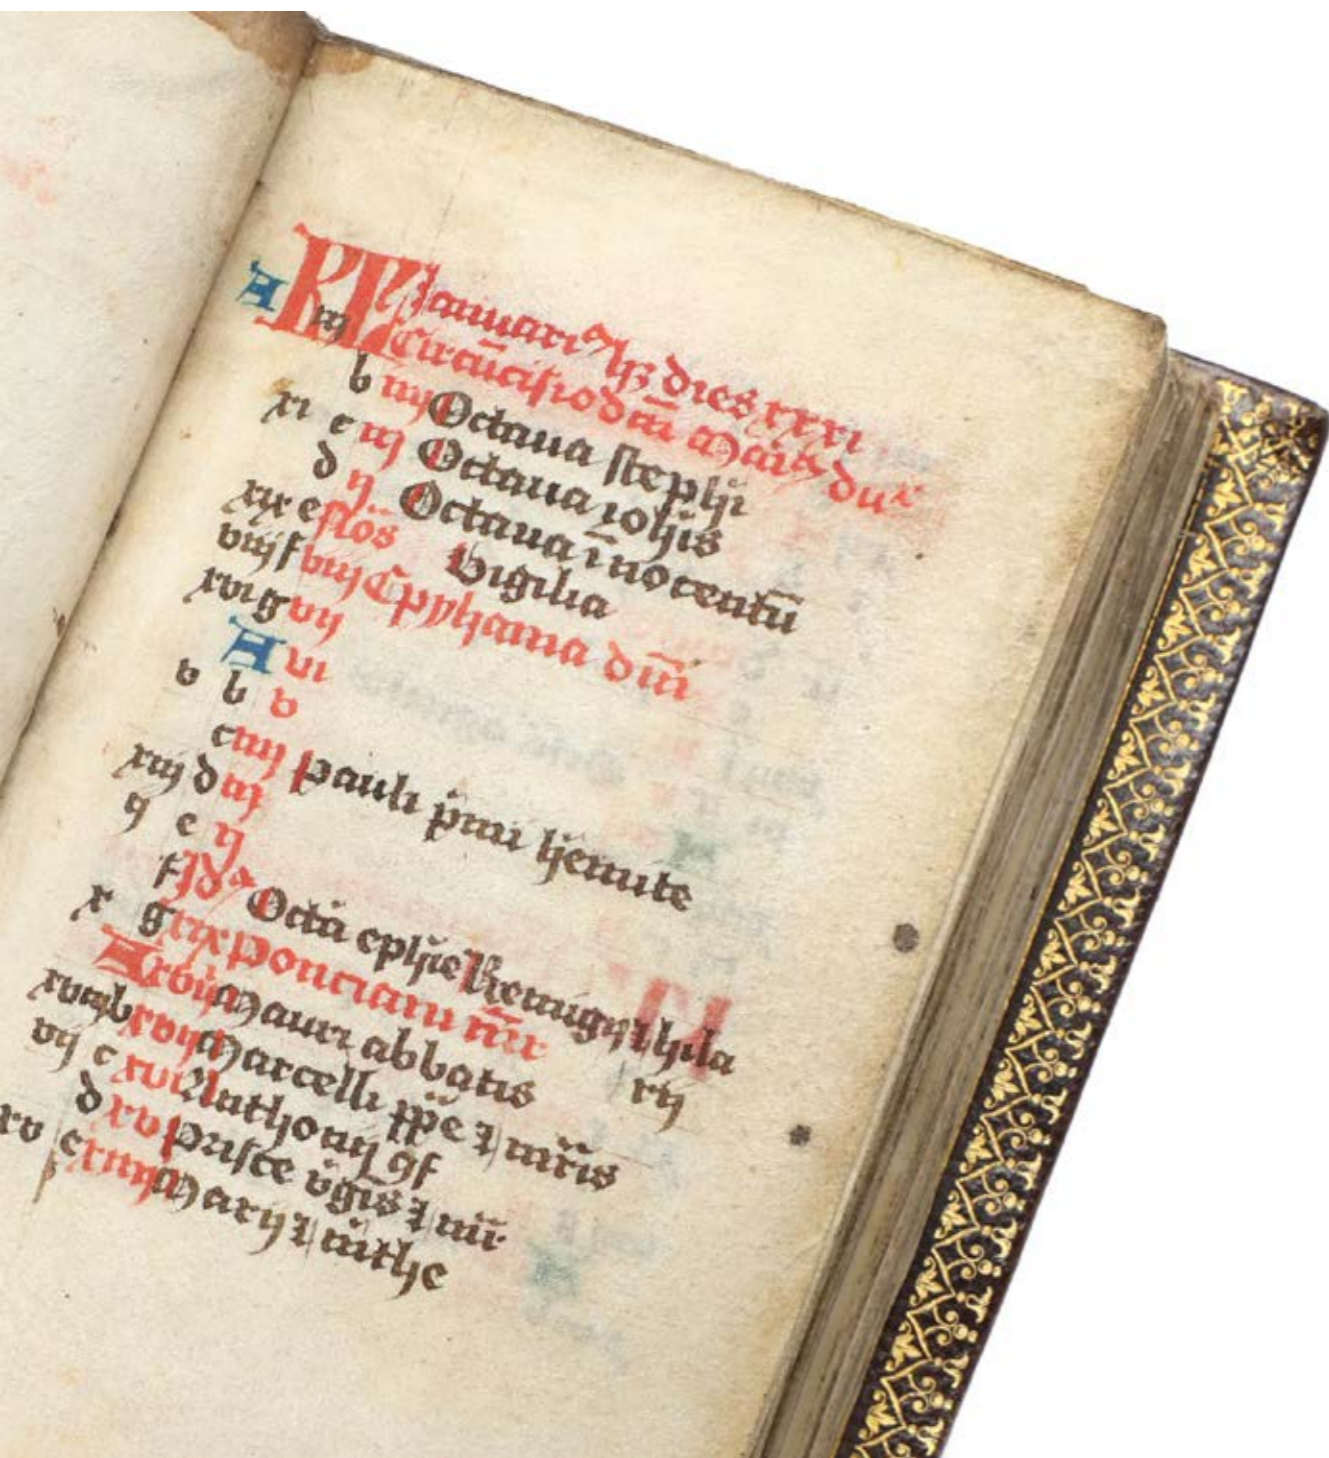 KL Januariꝰ hꝫ dies xxxi
A iij Circũcisio dñi Maiꝰ du
b iiij Octaua stephi
xi c iij Octaua iohis
d ij Octaua īnocentū
xix e Nōs Vigilia
viij f viij Epyhania dñi
xvi g vij
A vi
v b v
c iiij Pauli pmi hemite
xiij d iij
ij e ij
f Jdꝰ Octā ephie Remigij ⁊ hila
rij
x g xix Ponciani mr̄r
A xviij Mauri abbatis
xviij b xvij Marcelli ppe ⁊ mr̄is
vij c xvi Anthonij ꝯf
d xv Prisce v̄gis ⁊ mr̄
xv e xiiij Marij ⁊ mr̄the